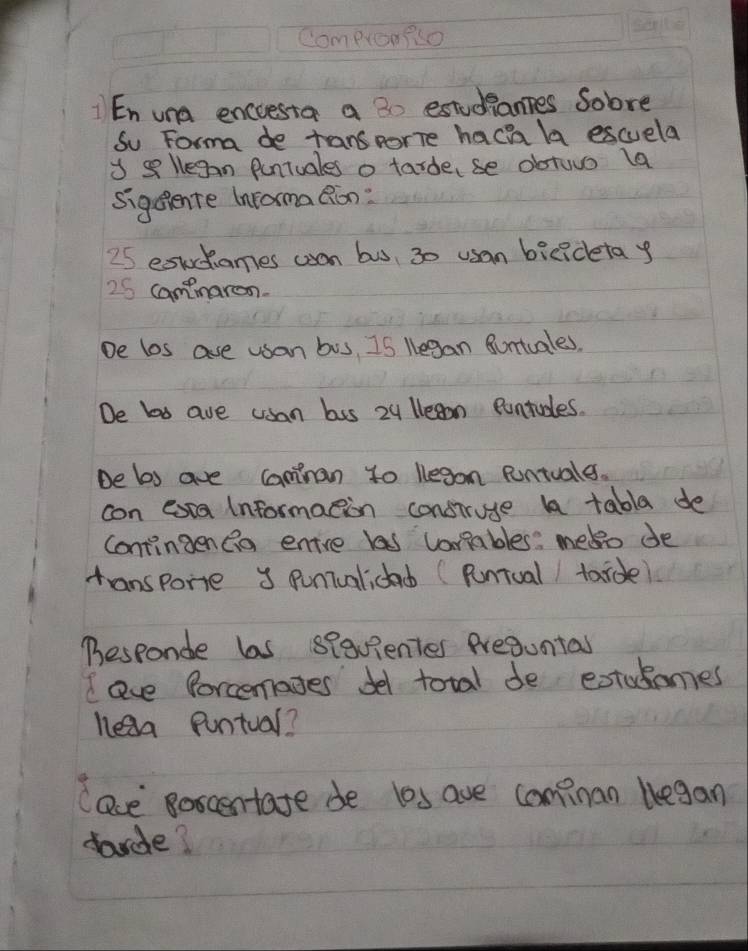 Compromiso
1) En una encuesta a 80 estudiantes Sobre
Su Forma de transporte hacia la escuela
y si llegan puntuales o tarde, se obtuvo la
siguiente informacion:
25 estudiantes usan bus, 30 usan bicicleta y
25 caminaron.
De los que usan bus, 15 llegan puntuales.
De los que usan bus 24 llegan puntuales.
De los que caminan 10 llegan puntuales.
con esta informacion construye la tabla de
contingencia entre las variables: medio de
transporte y puntualidad (puntual / tarde).
Responde las siguientes preguntas
¿Que porcentajes del total de estudiantes
llega puntual?
¿Qué porcentaje de los que caminan llegan
tarde?